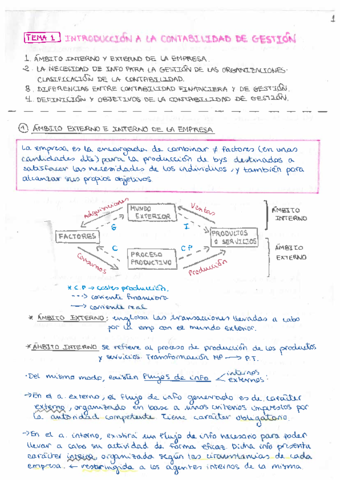 1
TEMA 1 INTRODUCCIÓN A LA CONTABILIDAD DE GESTIÓN
1. ÁMBITO INTERNO Y EXTERNO DE LA EMPRESA
2. LA NECESIDAD DE INFO PARA LA GESTIÓN DE LAS ORGANIZACIONES.
CLASIFICACIÓN DE LA CONTABILIDAD.
3. DIFERENCIAS ENTRE CONTABILIDAD FINANCIERA Y DE GESTIÓN.
4. DEFINICIÓN Y OBJETIVOS DE LA CONTABILIDAD DE GESTIÓN.
1 ÁMBITO EXTERNO E INTERNO DE LA EMPRESA
La empresa es la encargada de combinar ≠ factores (en unas
cantidades dta) para la producción de bys destinados a
satisfacer las necesidades de los individuos, y también para
alcanzar sus propios objetivos
Adquisiciones
MUNDO EXTERIOR
Ventas
ÁMBITO INTERNO
G
I
FACTORES
PRODUCTOS o SERVICIOS
C
CP
PROCESO PRODUCTIVO
ÁMBITO EXTERNO
Consumos
Producción
* C.P → costes producción.
---> corriente financiera
→ corriente real
* ÁMBITO EXTERNO: engloba las transacciones llevadas a cabo
por la emp con el mundo exterior.
* ÁMBITO INTERNO se refiere al proceso de producción de los productos
y servicios Transformación MP → P.T.
· Del mismo modo, existen flujos de info internos
externos:
→ En el a. externo, el flujo de info generado es de carácter
externo, organizado en base a unos criterios impuestos por
la autoridad competente tiene carácter obligatorio.
→ En el a. interno, existirá un flujo de info necesario para poder
llevar a cabo su actividad de forma eficaz. Dicha info presenta
carácter interno organizada según las circunstancias de cada
empresa. + restringida a los agentes internos de la misma